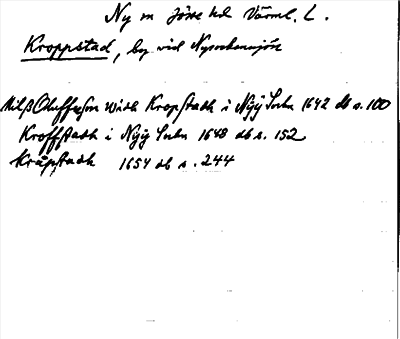 Ny sn Jösse hd Värml. L.
Kroppstad, by vid Nysockensjön
Nilß Oluffuson widh Kropstadh i Nÿÿ Sockn 1642 db s. 100
Kroffstadh i Nÿÿ Sockn 1648 db s. 152
Kråpstadh 1654 db s. 244